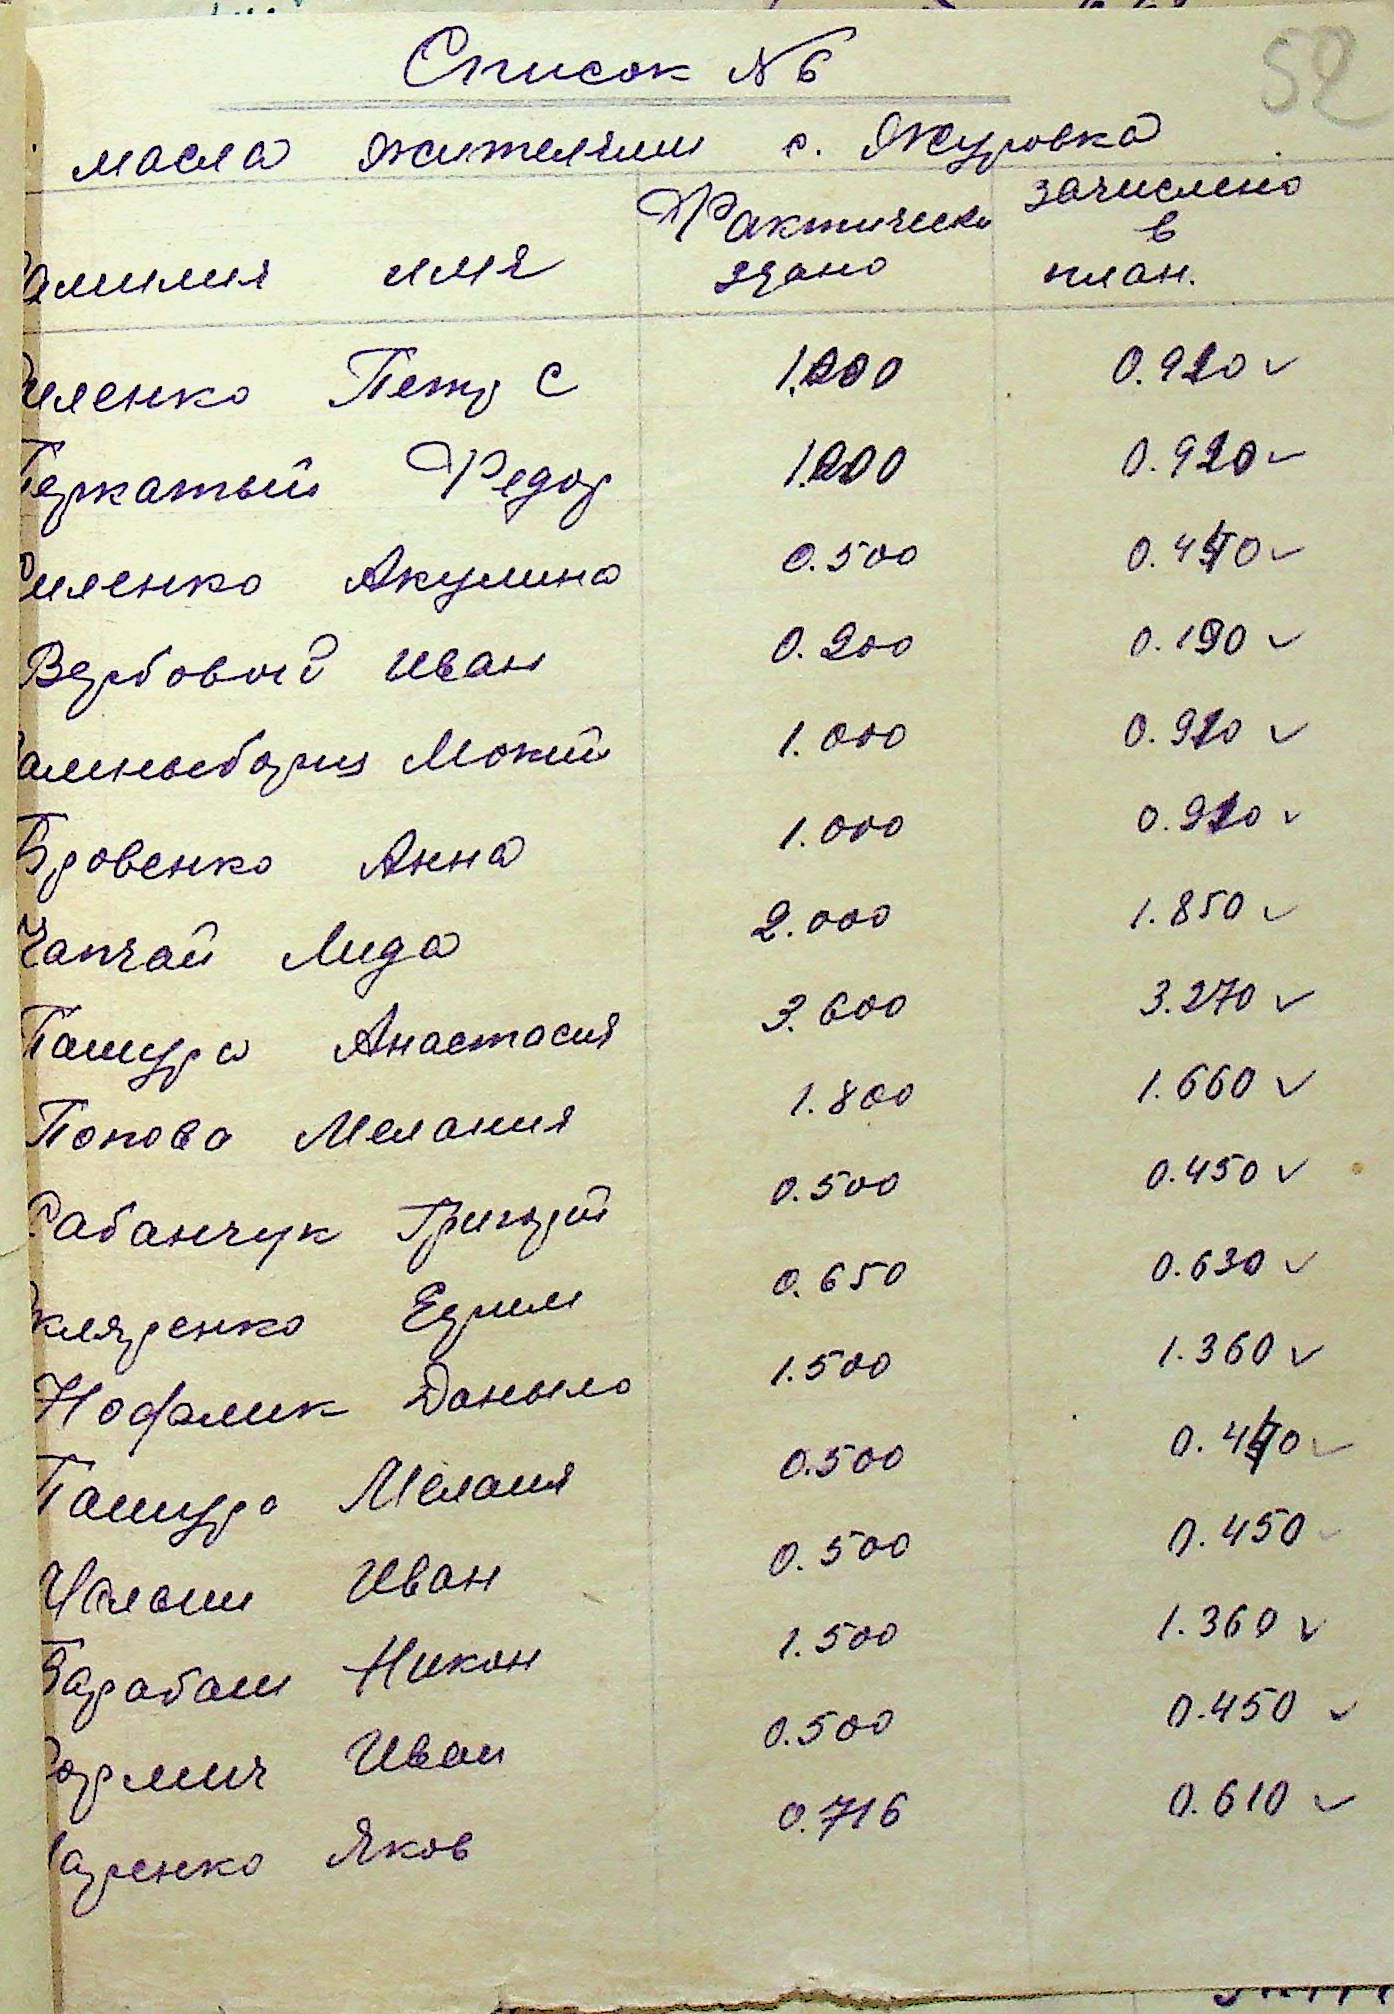 52
Список №6
масла жителями с. Журовка
Фактически зачислено
в
амилия имя здано план.
иленко Петр С 1.000 0.920 ✓
Перкатый Федор 1.000 0.920 ✓
иленко Акулина 0.500 0.450 ✓
Вербовой Иван 0.200 0.190 ✓
Мокий 1.000 0.910 ✓
Бровенко Анна 1.000 0.910 ✓
Чапчай Лида 2.000 1.850 ✓
Пашура Анастасия 3.600 3.270 ✓
Попова Мелания 1.800 1.660 ✓
Рабанчук Григорий 0.500 0.450 ✓
кляренко Ефим 0.650 0.630 ✓
Даныло 1.500 1.360 ✓
Пашура Мелания 0.500 0.450 ✓
Иван 0.500 0.450 ✓
Барабаш Никон 1.500 1.360 ✓
Иван 0.500 0.450 ✓
аренко Яков 0.716 0.610 ✓